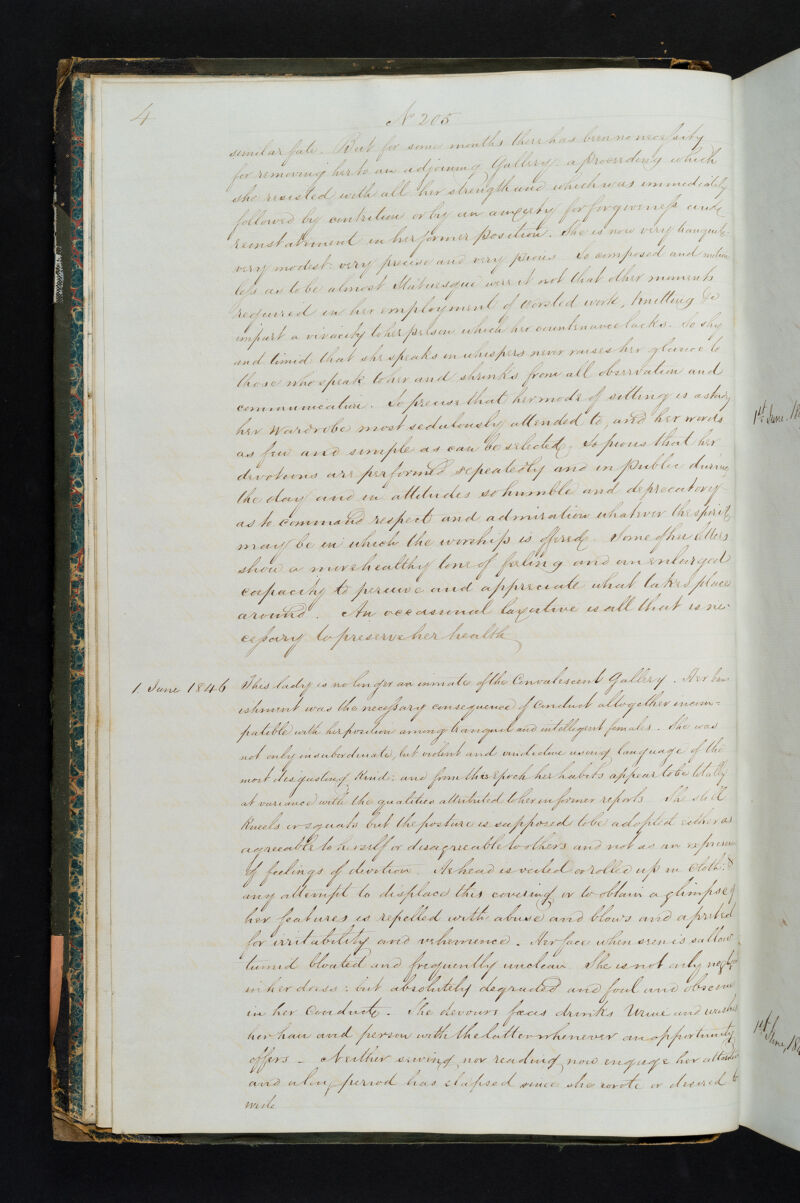 4
No 205
similar fate. But for some months there has been no necessity
for removing her to an adjoining Gallery: a proceeding which
she resisted with all her strength and which was immediately
followed by contrition or by an anxiety for forgiveness and
reinstatement in her former position. She is now very tranquil
very modest: very precise and very pious. So composed and motion
less as to be almost Statuesque were it not that other moments
required in her employment of worsted work, knitting &c
impart a vivacity to her person which her countenance lacks. So shy
and timid that she speaks in whispers never raises her glance to
those who speak to her and shrinks from all observation and
communication. So precise that her mode of sitting is a study
her Wardrobe most sedulously attended to, and her words
as few and simple as can be selected. So pious that her
devotions are performed repeatedly and in public during
the day and in attitudes so humble and deprecatory
as to command respect and admiration whatever the spirit
may be in which the worship is offered. Some of her letters
show a more healthy tone of feeling and an enlarged
capacity to perceive and appreciate what takes place
around. An occasional laxative is all that is ne-
cessary to preserve her health
1 June 1846 This lady is no longer an inmate of the Convalescent Gallery. Her ban
ishment was the necessary consequence of conduct altogether incom=
patible with her position among tranquil and intelligent females. She was
not only insubordinate, but violent and vindictive using language of the
most disgusting kind: and from this epoch her habits appear to be totally
at variance with the qualities attributed to her in former reports. She still
kneels or squats but the posture is supposed to be adopted either as
agreeable to herself or disagreeable to others and not as an expression
of feelings of devotion. Her head is veiled or rolled up in cloth: &
any attempt to displace this covering or to obtain a glimpse of
her features is repelled with abuse and blows and a protest
for irritability and vehemence. Her face when seen is sallow
tumid bloated and frequently unclean. She is not only
in her dress: but absolutely degraded and foul and obscene
in her conduct. She devours fæces drinks Urine and washes
her hair and person with the latter whenever an opportunity
offers - Neither sewing nor reading now engage her attention
and a long period has elapsed since she wrote or desired to
write
1st June, 18
1st June, 18